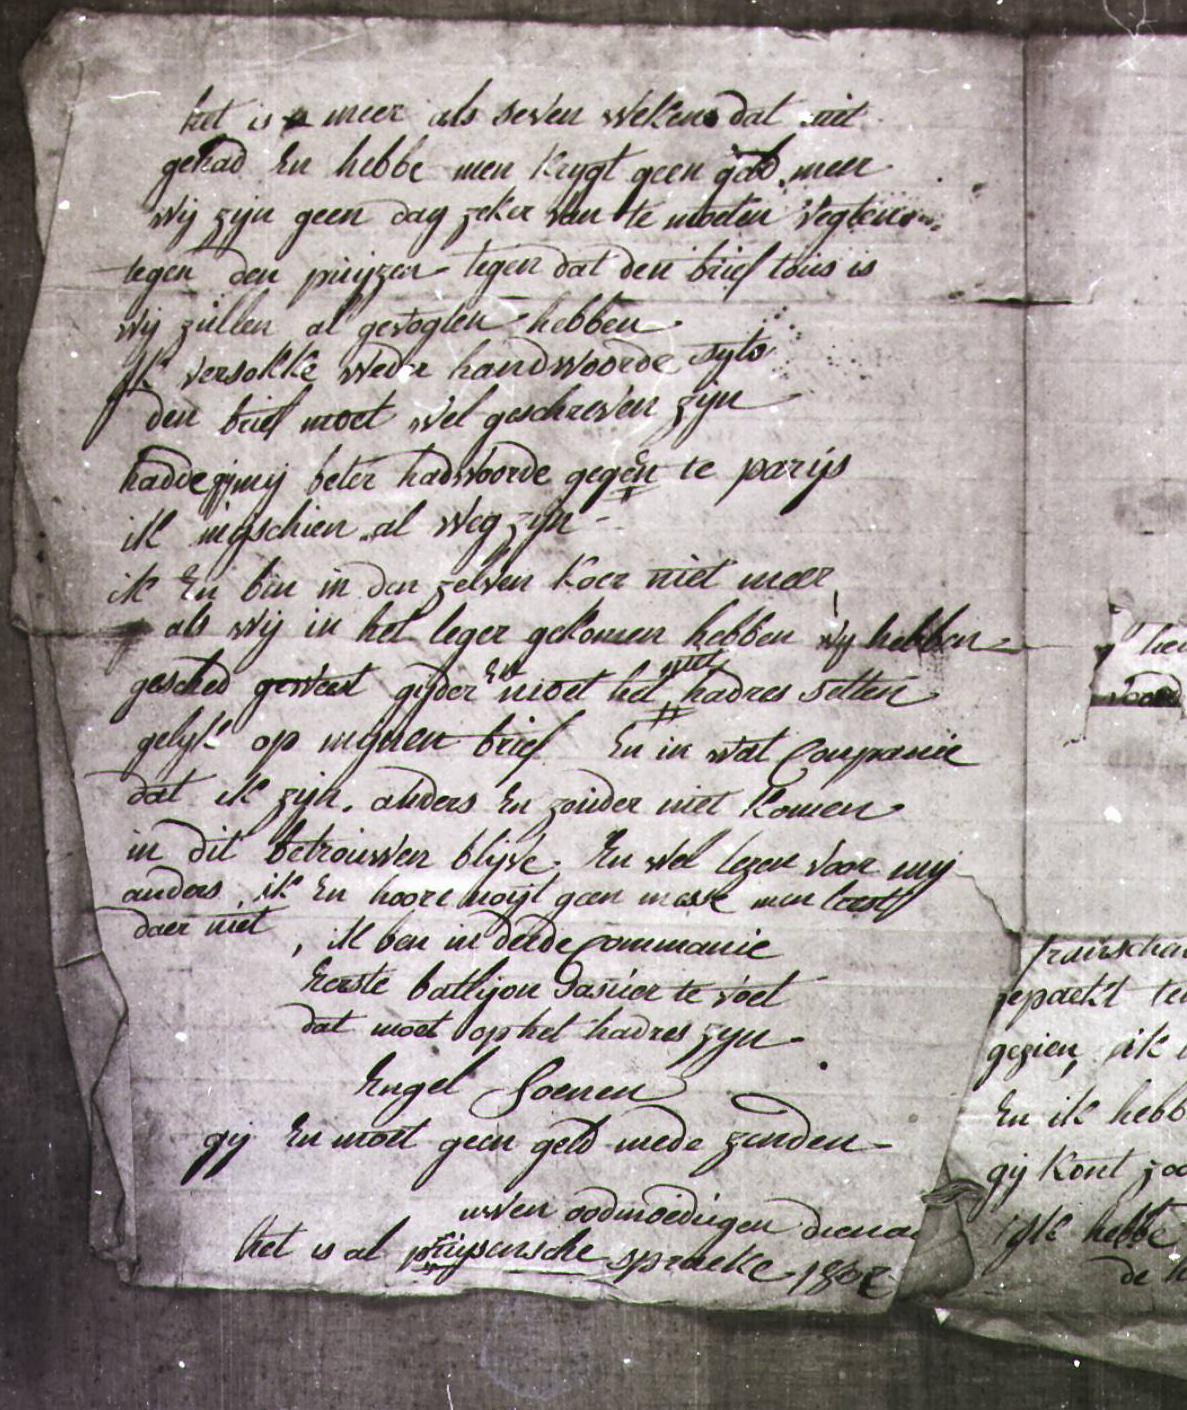 het is meer als seven weken dat niet
gehad En hebbe men Krygt geen meer
wij zijn geen dag zeker van te moeten vegten
tegen den pruijzen tegen dat den brief tuis is
wij zullen al gevogten hebben
ik versokke weder handwoorde syto
den brief moet wel geschreven zijn
hadde gij mij beter hadwoorde gegen te parijs
ik misschien al weg zijn
ik En bin in den zelven Koer niet meer
als wij in het leger gekomen hebben wij hebben
gesched geweest gijder En moet het niet hadres setten
gelyk op mijnen brief En in wat Companie
dat ik zijn. anders En zouder niet Komen
in dit betrouwen blijve. En wel lezen voor mij
anders ik En hoore noijt geen messe men leest
daer niet
, ik ben in derde Commanie
Eerste batlijon te voet
dat moet op het hadres zyn
Engel Soenen
gij En moet geen geld mede zenden
uwen oodmoedigen diena
het is al pruijsensche spraeke
hee
voord
gepaekt
gezien, ik
En ik hebb
gij Kont
ijk hebbe
de